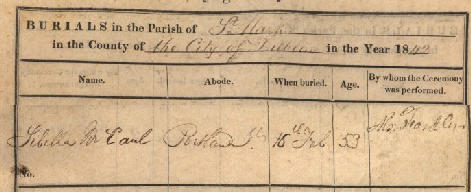 BURIALS in the Parish of St Mark
in the County of the City of Dublin in the Year 1842
Name. Abode. When buried. Age. By whom the Ceremony was performed.
Sibella Portland St. 16th Feb 53
No.